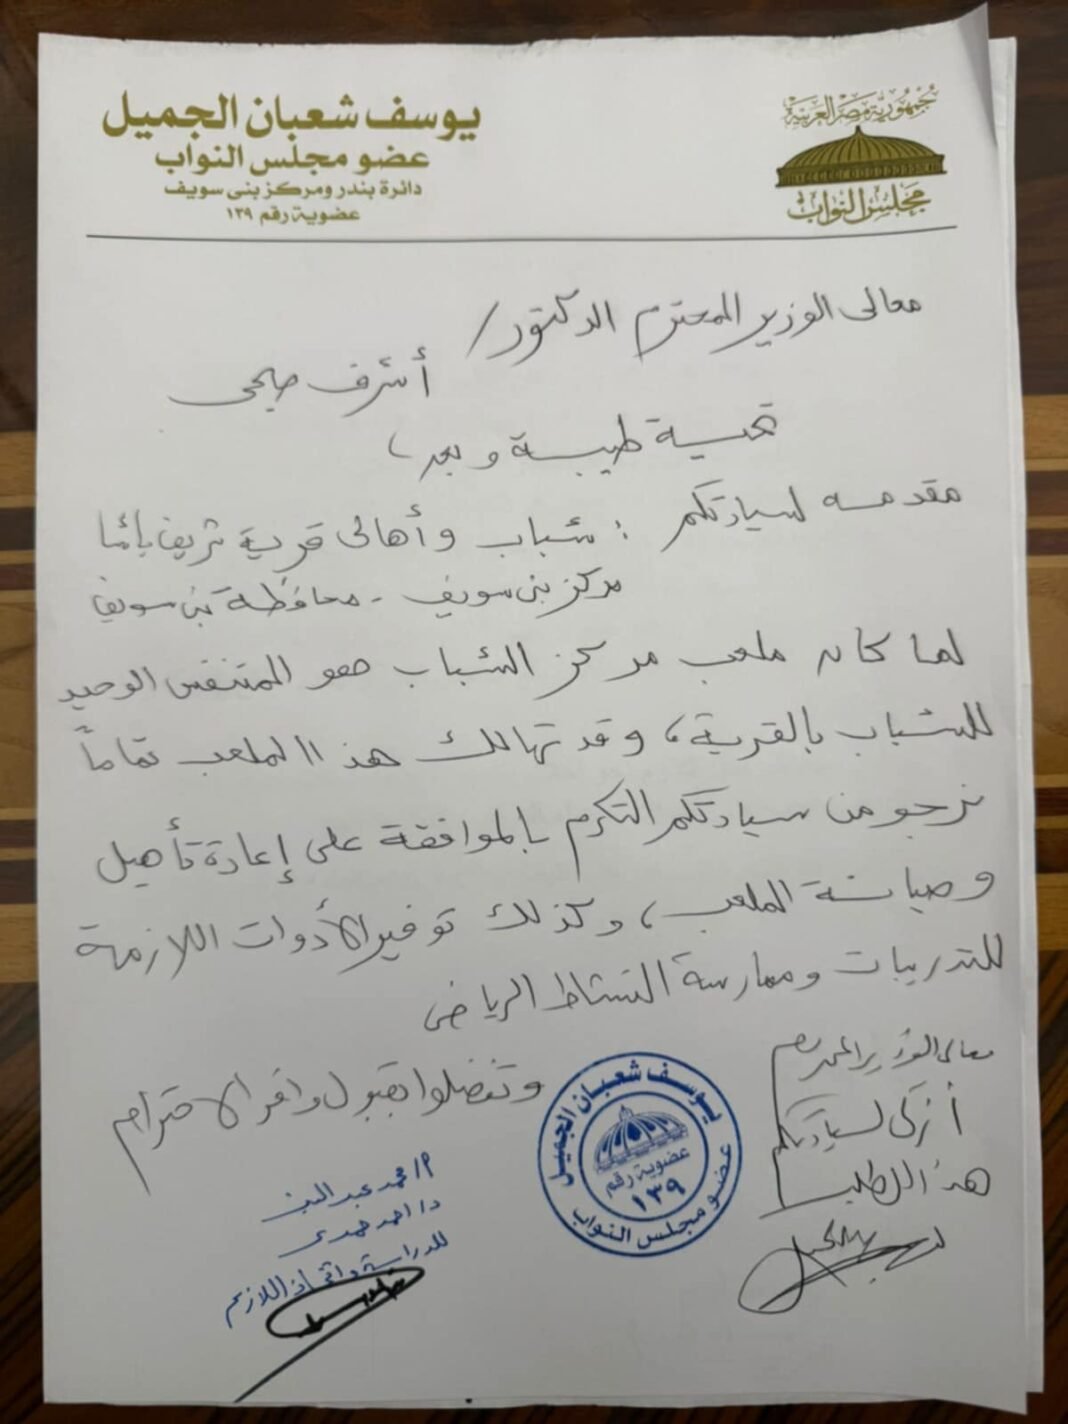 جمهورية مصر العربية
مجلس النواب
يوسف شعبان الجميل
عضو مجلس النواب
دائرة بندر ومركز بنى سويف
عضوية رقم ١٣٩
معالى الوزير المحترم الدكتور /
أشرف صبحى
تحية طيبة وبعد ،
مقدمه لسيادتكم : شباب وأهالى قرية شريف باشا
مركز بنى سويف - محافظة بنى سويف
لما كان ملعب مركز الشباب هو المتنفس الوحيد
للشباب بالقرية ، وقد تهالك هذا الملعب تماماً
نرجو من سيادتكم التكرم بالموافقة على إعادة تأهيل
وصيانة الملعب ، وكذلك توفير الأدوات اللازمة
للتدريبات وممارسة النشاط الرياضى
وتفضلوا بقبول وافر الاحترام
معالى الوزير المحترم
أزكى لسيادتكم
هذا الطلب
يوسف شعبان الجميل
عضوية رقم
١٣٩
عضو مجلس النواب
د/ احمد حمدى
للدراسة واتخاذ اللازم